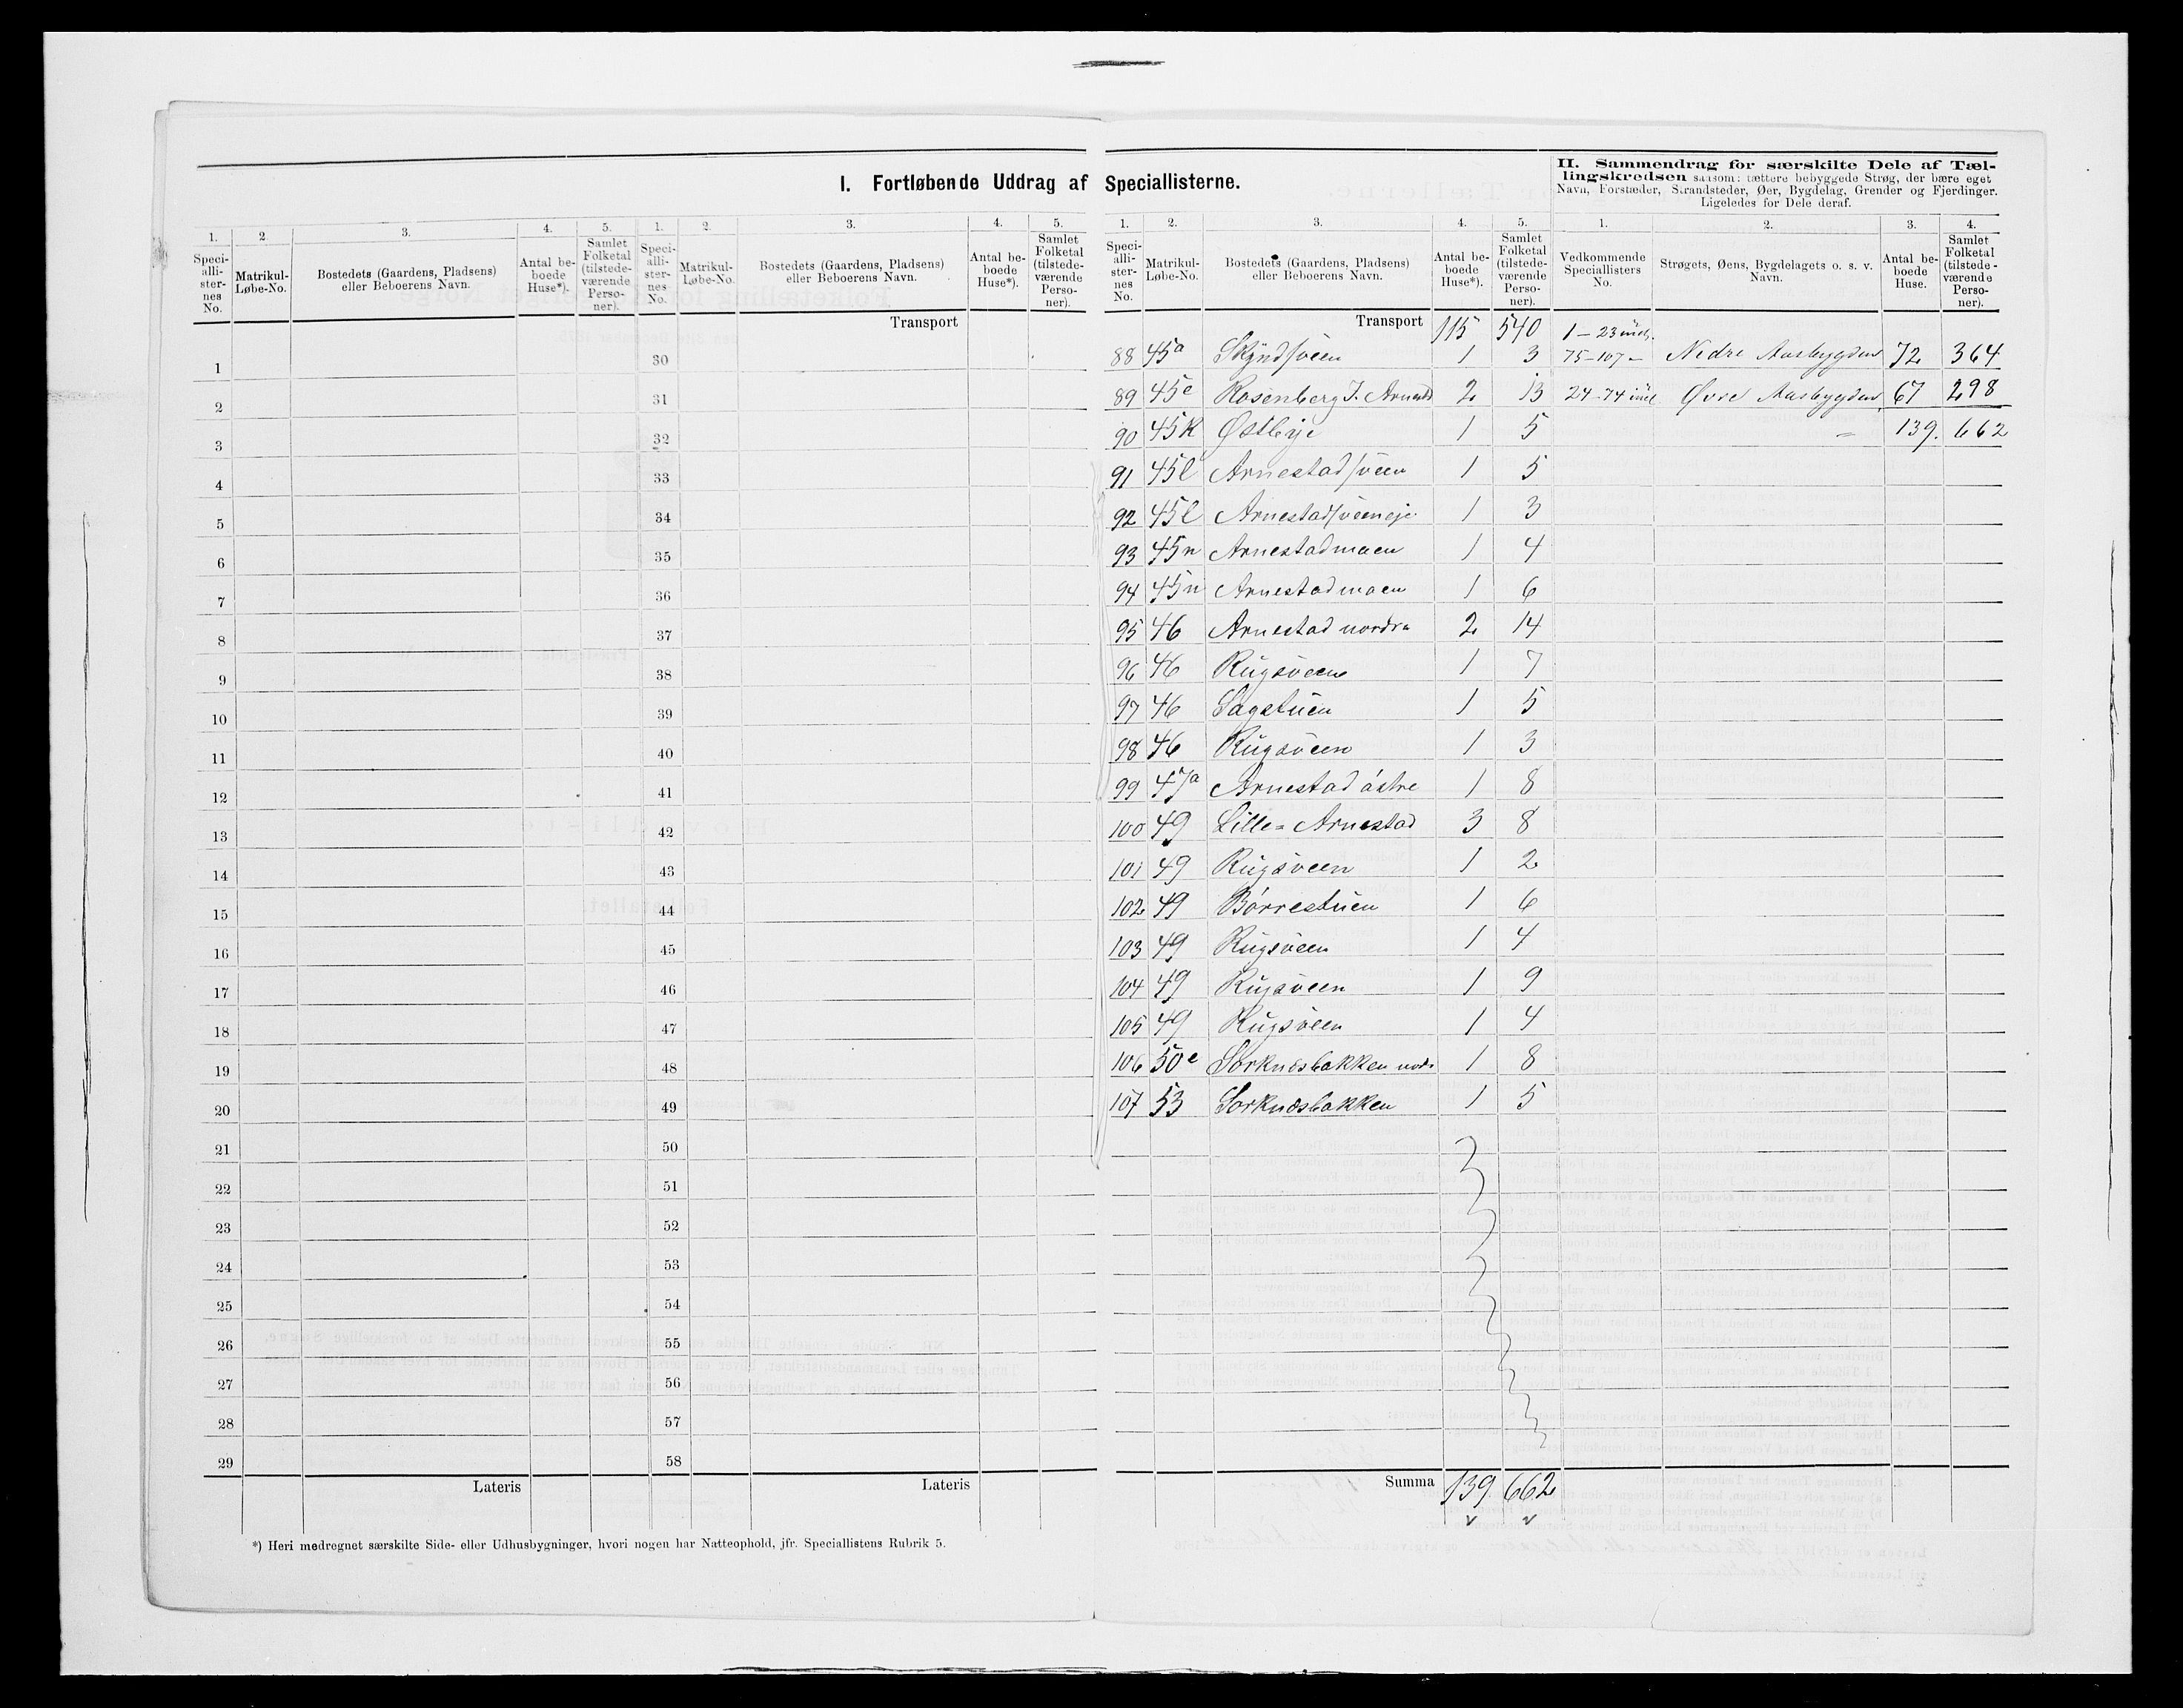 I. Fortløbende Uddrag af Speciallisterne.
II. Sammendrag for særskilte Dele af Tæl-
lingskredsen saasom: tættere bebyggede Strøg, der bære eget
Navn, Forstæder, Strandsteder, Øer, Bygdelag, Grender og Fjerdinger.
Ligeledes for Dele deraf.
1. Speci-alli-ster-nes No. 2. Matrikul-Løbe-No. 3. Bostedets (Gaardens, Pladsens) eller Beboerens Navn. 4. Antal be-boede Huse*). 5. Samlet Folketal (tilstede-værende Perso-ner).
1. Speci-alli-ster-nes No. 2. Matrikul-Løbe-No. 3. Bostedets (Gaardens, Pladsens) eller Beboerens Navn. 4. Antal be-boede Huse*). 5. Samlet Folketal (tilstede-værende Perso-ner).
1. Speci-alli-ster-nes No. 2. Matrikul-Løbe-No. 3. Bostedets (Gaardens, Pladsens) eller Beboerens Navn. 4. Antal be-boede Huse*). 5. Samlet Folketal (tilstede-værende Perso-ner).
1. Vedkommende Speciallisters No. 2. Strøgets, Øens, Bygdelagets o. s. v. Navn. 3. Antal be-boede Huse. 4. Samlet Folketal (tilstede-værende Perso-ner).
1
2
3
4
5
6
7
8
9
10
11
12
13
14
15
16
17
18
19
20
21
22
23
24
25
26
27
28
29
Lateris
Transport
30
31
32
33
34
35
36
37
38
39
40
41
42
43
44
45
46
47
48
49
50
51
52
53
54
55
56
57
58
Lateris
Transport 115 540
88 45a 1 3
89 45e Rosenberg J. 2 13
90 45k Østbye 1 5
91 45l Arnestadsveen 1 5
92 45l Arnestadsveeneje 1 3
93 45n Arnestadmoen 1 4
94 45n Arnestadmoen 1 6
95 46 Arnestad nordre 2 14
96 46 Rugsveen 1 7
97 46 Sagstuen 1 5
98 46 Rugsveen 1 3
99 47a Arnestad østre 1 8
100 49 Lille= Arnestad 3 8
101 49 Rugsveen 1 2
102 49 Börrestuen 1 6
103 49 Rugsveen 1 4
104 49 Rugsveen 1 9
105 49 Rugsveen 1 4
106 50e Sorknesbakken nodr 1 8
107 53 Sorknesbakken 1 5
Summa 139 662
1–23 incl.
75–107 – Nedre Aasbygden 72 364
24–74 incl Øvre Aasbygden 67 298
= 139. 662
*) Heri medregnet særskilte Side- eller Udhusbygninger, hvori nogen har Natteophold, jfr. Speciallistens Rubrik 5.